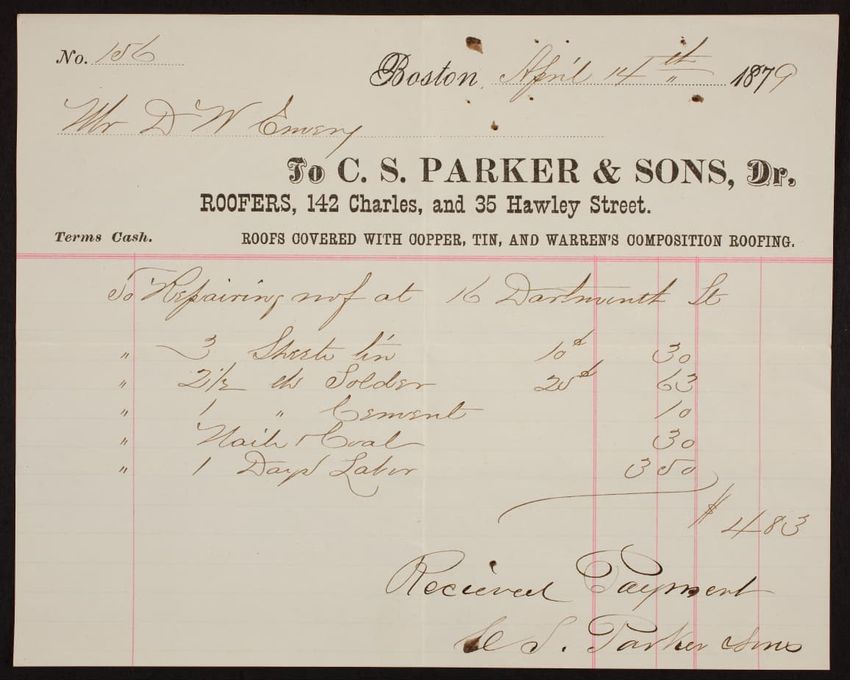 No. 156
Boston, April 14th 1879
Mr D W Emery
To C. S. PARKER & SONS, Dr.
ROOFERS, 142 Charles, and 35 Hawley Street.
Terms Cash. ROOFS COVERED WITH COPPER, TIN, AND WARREN'S COMPOSITION ROOFING.
To Repairing roof at 16 Dartmouth St
" 3 Sheets tin 10¢ 30
" 2 1/2 lbs Solder 25¢ 63
" 1 " Cement 10
" Nails & Coal 30
" 1 Days Labor 3 50
$ 4 83
Recieved Payment
C S. Parker & Sons